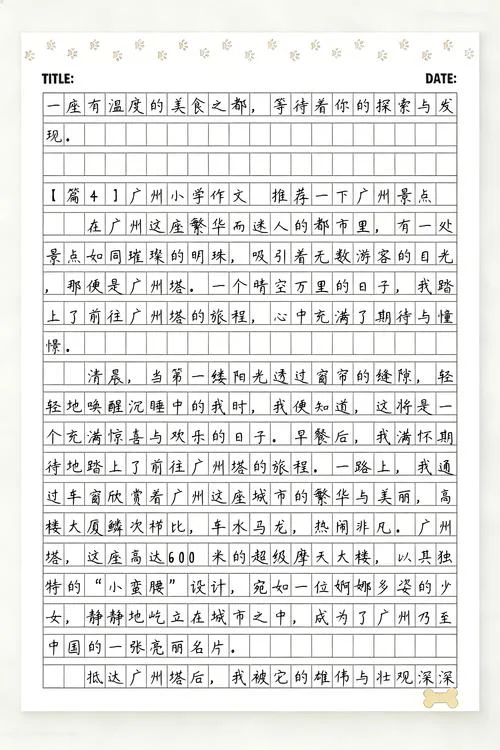 TITLE: DATE:
一座有温度的美食之都，等待着你的探索与发
现。
【篇4】广州小学作文 推荐一下广州景点
在广州这座繁华而迷人的都市里，有一处
景点如同璀璨的明珠，吸引着无数游客的目光
，那便是广州塔。一个晴空万里的日子，我踏
上了前往广州塔的旅程，心中充满了期待与憧
憬。
清晨，当第一缕阳光透过窗帘的缝隙，轻
轻地唤醒沉睡中的我时，我便知道，这将是一
个充满惊喜与欢乐的日子。早餐后，我满怀期
待地踏上了前往广州塔的旅程。一路上，我通
过车窗欣赏着广州这座城市的繁华与美丽，高
楼大厦鳞次栉比，车水马龙，热闹非凡。广州
塔，这座高达600 米的超级摩天大楼，以其独
特的“小蛮腰”设计，宛如一位婀娜多姿的少
女，静静地屹立在城市之中，成为了广州乃至
中国的一张亮丽名片。
抵达广州塔后，我被它的雄伟与壮观深深